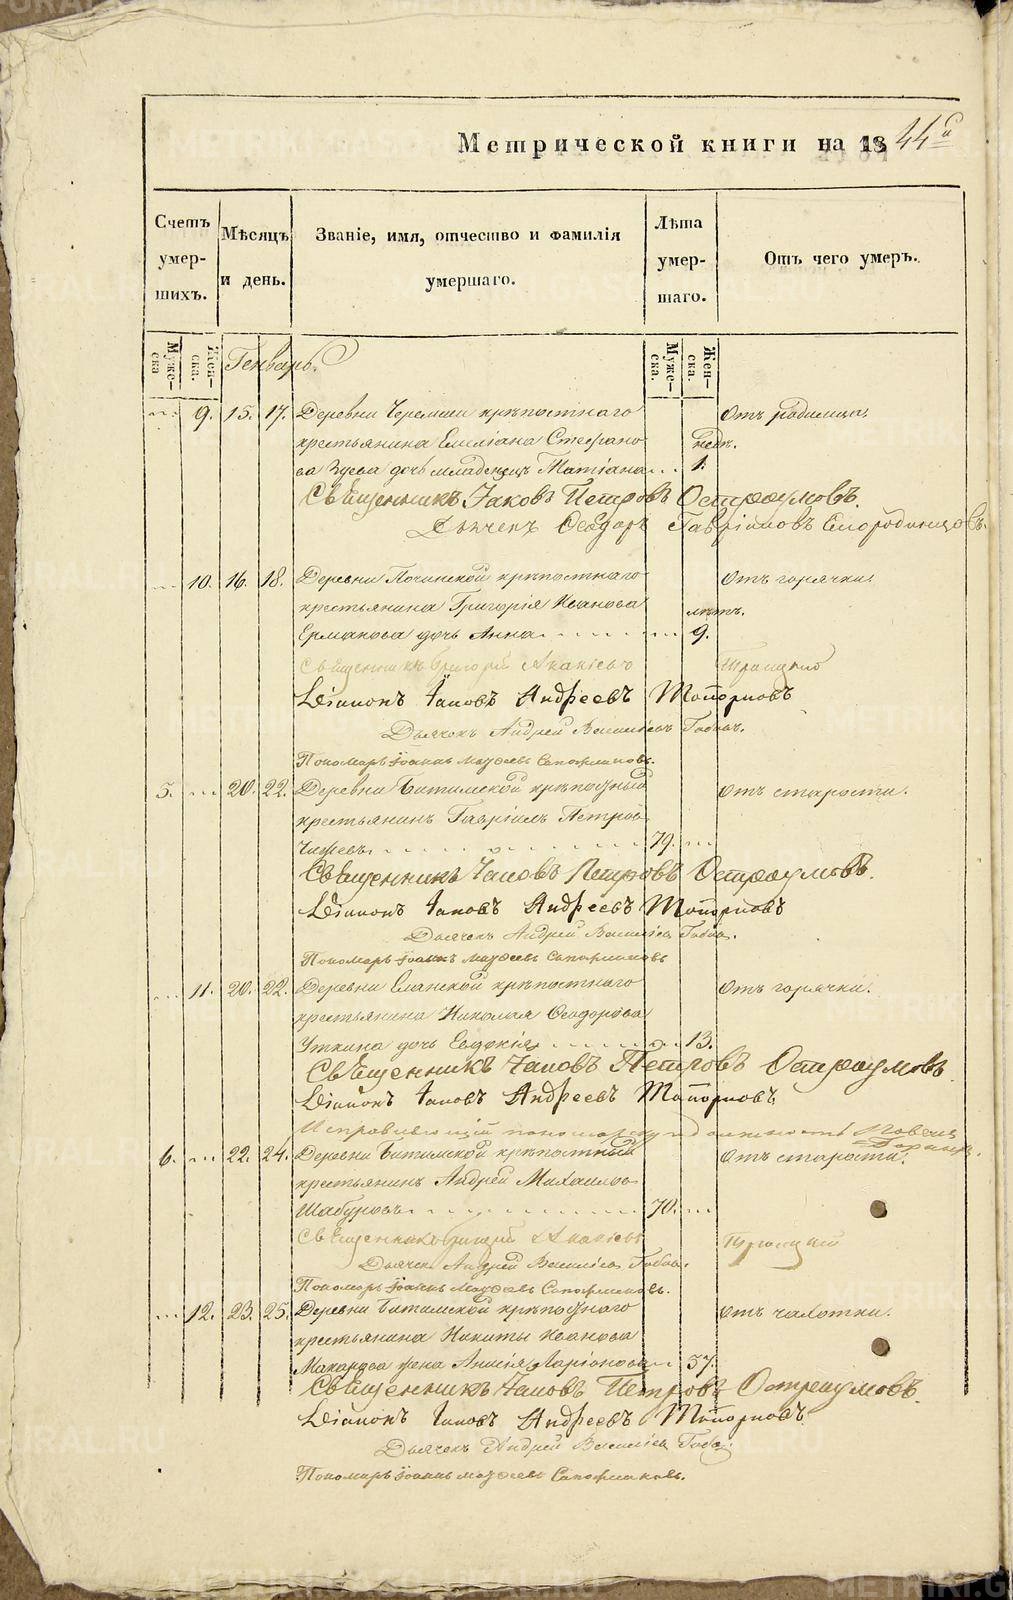 Метрической книги на 1844 й
Счетъ умер-шихъ.
Мѣсяцъ и день.
Званіе, имя, отчество и фамилія умершаго.
Лѣта умер-шаго.
Отъ чего умеръ.
Муже-ска
Жен-ска.
Генварь.
Муже-ска.
Жен-ска.
9. 15. 17. Деревни Черемши крѣпостнаго Отъ родимца.
крестьянина Емиліана Стефано- недѣл.
ва Зуева дочь младенецъ Татіана 1.
Священникъ Іаковъ Петровъ Остроумовъ.
Дьячекъ Ѳеодоръ Гавріиловъ Смородинцовъ.
10. 16. 18. Деревни Починской крѣпостнаго Отъ горячки.
крестьянина Григорія Иванова лѣтъ.
Ермакова дочь Анна 9.
Священникъ Григорій Акакіевъ Троицкій
Діаконъ Іаковъ Андреевъ Топорковъ
Дьячекъ Андрей Василіевъ
Пономарь Іоаннъ Моѵсеевъ Сапожниковъ.
5. 20. 22. Деревни Битимской крѣпостный Отъ старости.
крестьянинъ Гавріилъ Петровъ
Чижевъ 79.
Священникъ Іаковъ Петровъ Остроумовъ.
Діаконъ Іаковъ Андреевъ Топорковъ
Дьячекъ Андрей Василіевъ
Пономарь Іоаннъ Моѵсеевъ Сапожниковъ
11. 20. 22. Деревни Еланской крѣпостнаго Отъ горячки.
крестьянина Николая Ѳеодорова
Уткина дочь Евдокія 13.
Священникъ Іаковъ Петровъ Остроумовъ
Діаконъ Іаковъ Андреевъ Топорковъ
Исправляющій пономарскую должность
6. 22. 24. Деревни Битимской крѣпостный Отъ старости.
крестьянинъ Андрей Михайловъ
Шабуровъ 70.
Священникъ Григорій Акакіевъ Троицкій
Дьячекъ Андрей Василіевъ
Пономарь Іоаннъ Моѵсеевъ Сапожниковъ.
12. 23. 25. Деревни Битимской крѣпостнаго Отъ чахотки.
крестьянина Никиты Иванова
Макарова жена Анисія Ларіонова 57.
Священникъ Іаковъ Петровъ Остроумовъ.
Діаконъ Іаковъ Андреевъ Топорковъ.
Дьячекъ Андрей Василіевъ
Пономарь Іоаннъ Моѵсеевъ Сапожниковъ.